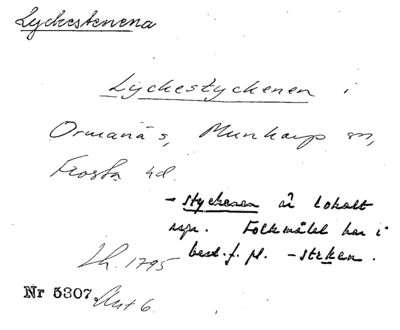 Lyckestenena
Lyckestyckenen i
Ormanäs, Munkarp sn,
Frosta hd.
- styckenen är lokalt
spr. Folkmålet har i
best. f. pl. - steken.
Lh. 1795
Nr 5307 Akt 6.